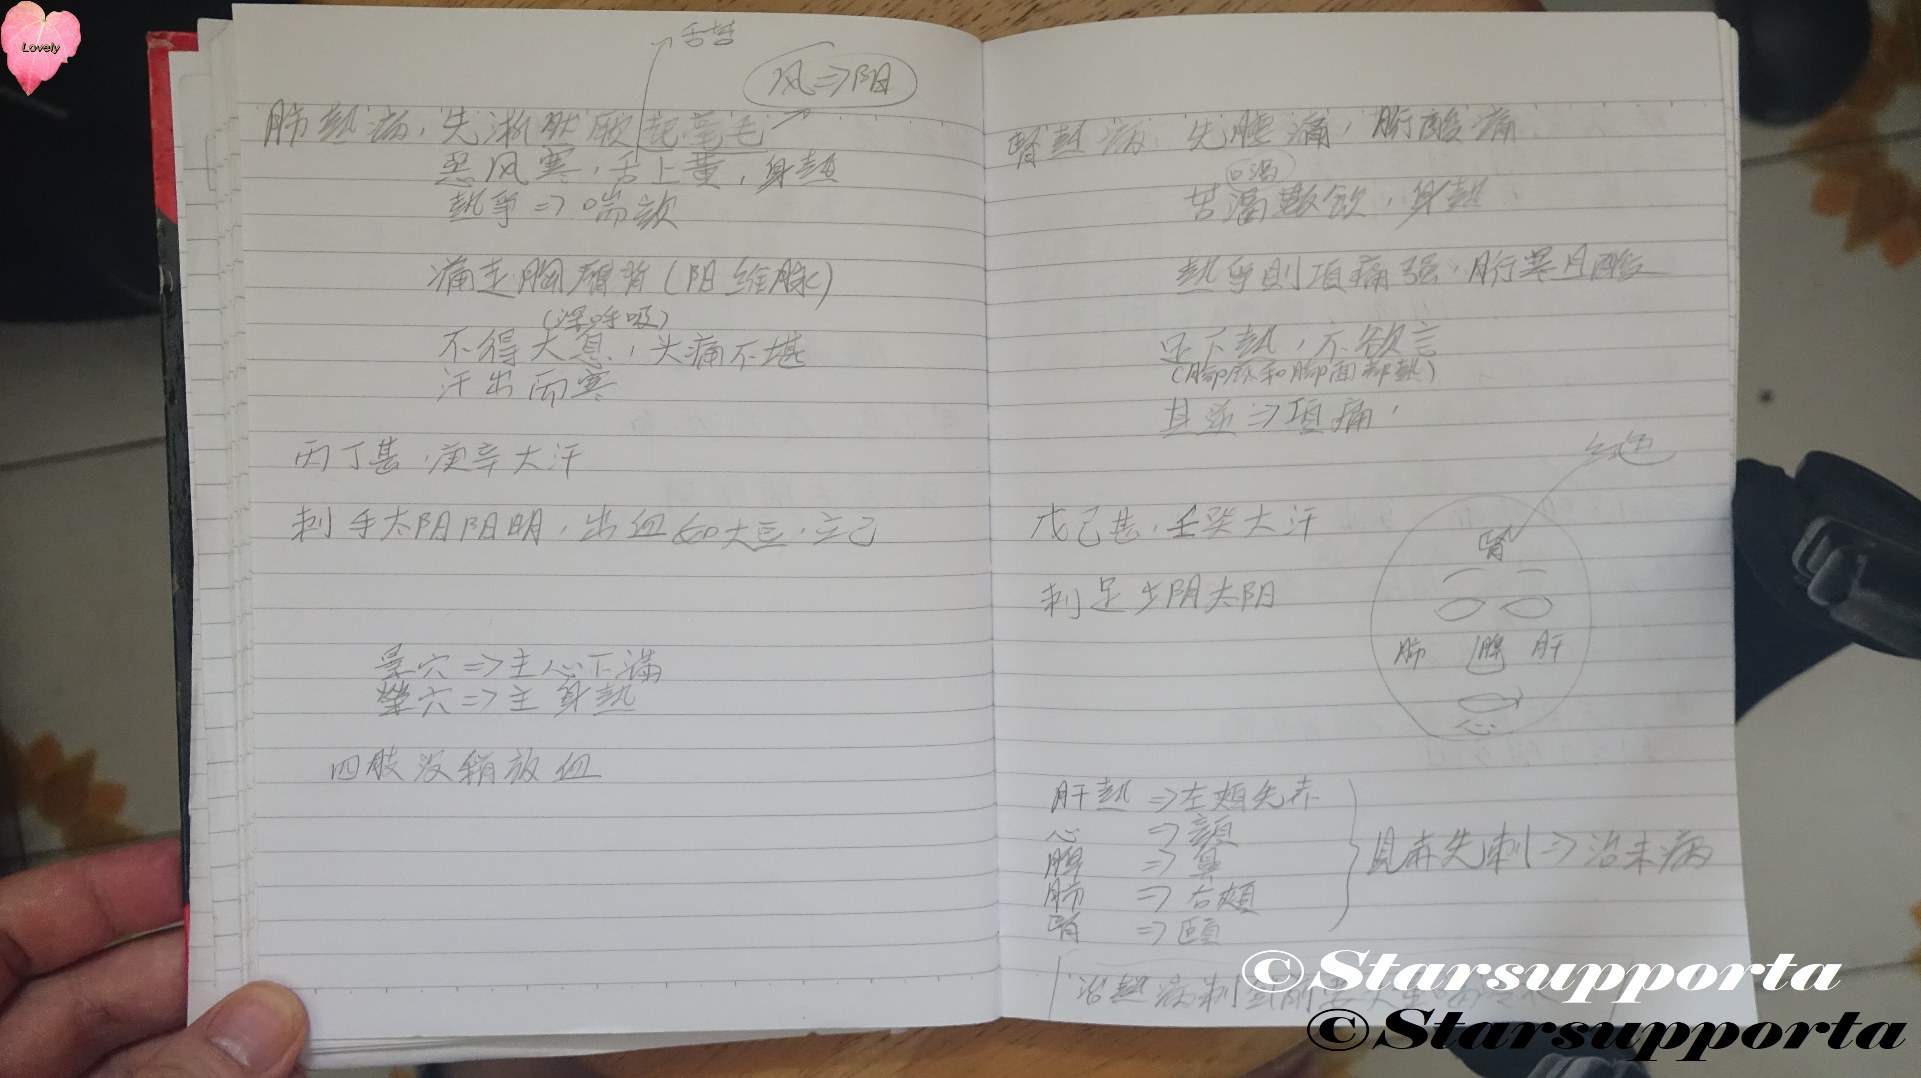 Lovely
舌苔
风⇒阴
肺熱病,先淅然厥起毫毛
恶风寒,舌上黄,身熱
熱争⇒喘欬
痛走胸膺背(阴维脉)
(深呼吸)
不得大息,头痛不堪
汗出而寒
丙丁甚,庚辛大汗
刺手太阴阳明,出血如大豆,立已
穴⇒主心下满
榮穴⇒主身熱
四肢 放血
腎熱病 先腰痛,胻酸痛
口渴
苦渴數飲,身熱
熱争則项痛强,胻寒且酸
足下熱,不欲言
(脚底和脚面都熱)
其逆⇒項痛,
戊己甚,壬癸大汗
刺足少阴太阳
腎
肺 脾 肝
心
肝熱⇒左頰先赤
心⇒顏
脾⇒鼻
肺⇒右頰
腎⇒頤
見赤先刺⇒治未病
治熱病刺
©Starsupporta
©Starsupporta